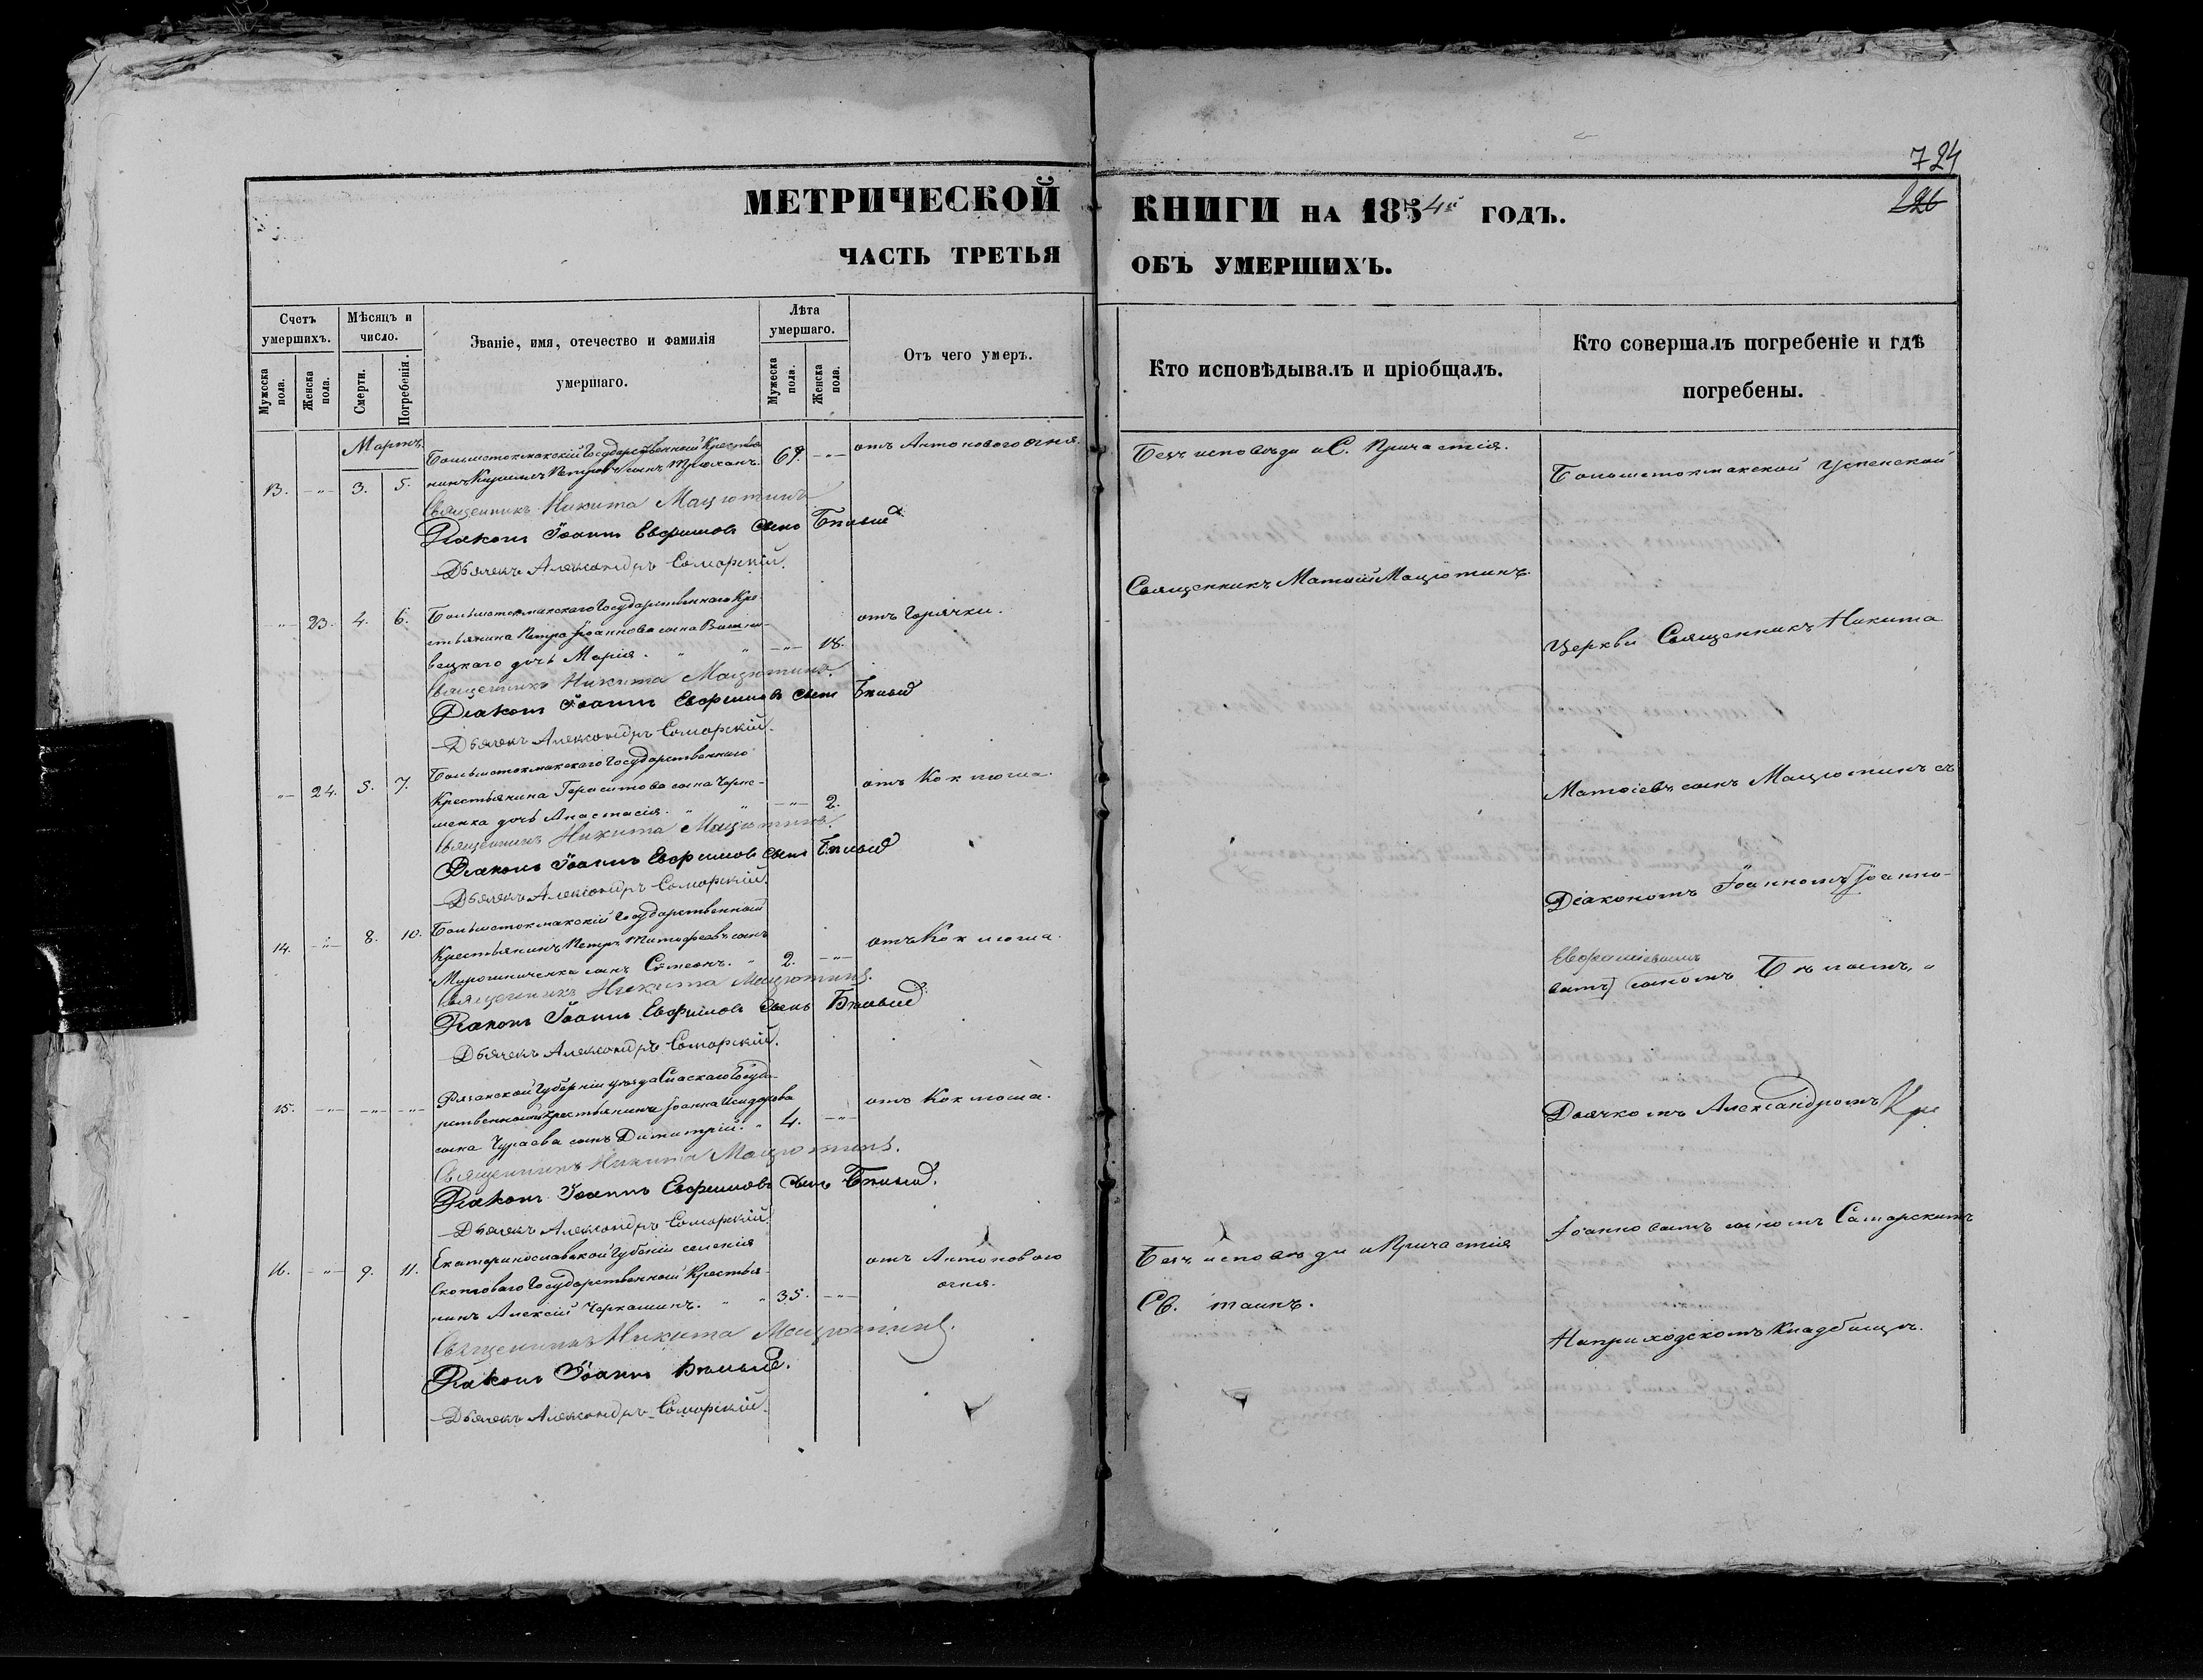 724
126
МЕТРИЧЕСКОЙ КНИГИ НА 1854й ГОДЪ.
ЧАСТЬ ТРЕТЬЯ ОБЪ УМЕРШИХЪ.
Счетъ умершихъ.
Мужеска пола.
Женска пола.
Мѣсяцъ и число.
Смерти.
Погребенія.
Званіе, имя, отечество и фамилія
умершаго.
Лѣта умершаго.
Мужеска пола.
Женска пола.
Отъ чего умеръ.
Кто исповѣдывалъ и пріобщалъ.
Кто совершалъ погребеніе и гдѣ
погребены.
Мартъ.
Большетокмакскій Государственный Крестья
13. -"- 3. 5. нинъ Петровъ сынъ 69. -"- отъ Антонова огня.
Священникъ Никита Мацютинъ
Діаконъ Іоаннъ Евфимовъ сынъ Бѣлый
Дьячекъ Александръ Самарскій.
Большетокмакскаго Государственнаго Кре
-"- 23. 4. 6. стьянина Петра Іоаннова сына Вишне-
вецкаго дочь Марія. " " -"- 18. отъ Горячки.
Священникъ Никита Мацютинъ.
Діаконъ Іоаннъ Евфимовъ сынъ Бѣлый
Дьячекъ Александръ Самарскій.
Большетокмакскаго Государственнаго
-"- 24. 5. 7. Крестьянина Герасимова сына
дочь Анастасія. " " -"- 2. отъ Коклюша.
Священникъ Никита Мацютинъ.
Діаконъ Іоаннъ Евфимовъ сынъ Бѣлый
Дьячекъ Александръ Самарскій.
Большетокмакскій Государственный
14. -"- 8. 10. Крестьянинъ Петръ Тимофеевъ сынъ
Мирошниченка сынъ Сѵмеонъ. " 2. -"- отъ Коклюша.
Священникъ Никита Мацютинъ.
Діаконъ Іоаннъ Евфимовъ сынъ Бѣлый
Дьячекъ Александръ Самарскій.
Рязанской Губерніи уѣзда Спаскаго Госуда
15. -"- -"- -"- рственный Крестьянинъ Іоанна Исидорова
сына Чураева сынъ Димитрій. " 4. -"- отъ Коклюша.
Священникъ Никита Мацютинъ.
Діаконъ Іоаннъ Евфимовъ сынъ Бѣлый.
Дьячекъ Александръ Самарскій.
Екатеринославской Губѣніи селенія
16. -"- 9. 11. Государственный Крестья-
нинъ Алексій Черкашинъ. " " 35. -"- отъ Антонового
огня.
Священникъ Никита Мацютинъ.
Діаконъ Іоаннъ Бѣлый.
Дьячекъ Александръ Самарскій.
Безъ исповѣди и С. Причастія.
Священникъ Матѳій Мацютинъ.
Безъ исповѣди и Причастія
Св. таинъ.
Большетокмакской Успенской
Церкви Священникъ Никита
Матѳіевъ сынъ Мацютинъ съ
Діакономъ Іоанномъ Іоанно-
Евфиміевымъ
вымъ) сыномъ Бѣлымъ, и
Дьячкомъ Александромъ
Іоанновымъ сыномъ Самарскимъ
На приходскомъ Кладбищѣ.